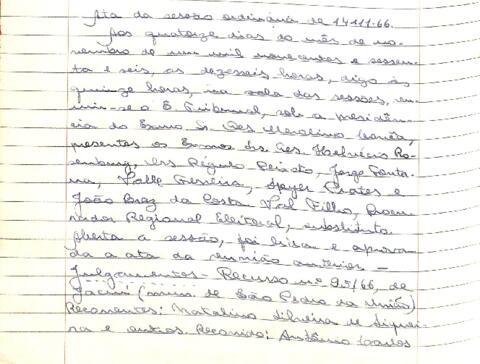 Ata da sessão ordinária de 14-11-66.
Aos quatorze dias do mês de no-
vembro de um mil novecentos e sessen-
ta e seis, as dezesseis horas, digo às
quinze horas, na sala das sessões, reu-
niu-se o E. Tribunal, sob a presidên-
cia do Exmo Sr. Des
presentes os Exmos Srs. Des. Helvécio Ro-
senburg, Drs Régulo Peixoto, Jorge Fonta-
na, Valle Ferreira, Apgar Prates e
João Braz da Costa Val Filho, Procu-
rador Regional Eleitoral, substituto.
Aberta a sessão, foi lida e aprova-
da a ata da reunião anterior -
Julgamentos - Recurso nº 92/66, de
Jacuí (mun. de São Pedro da União)
Recorrentes: Natalino Silveira de Siquei-
ra e outros. Recorrido: Antônio Carlos